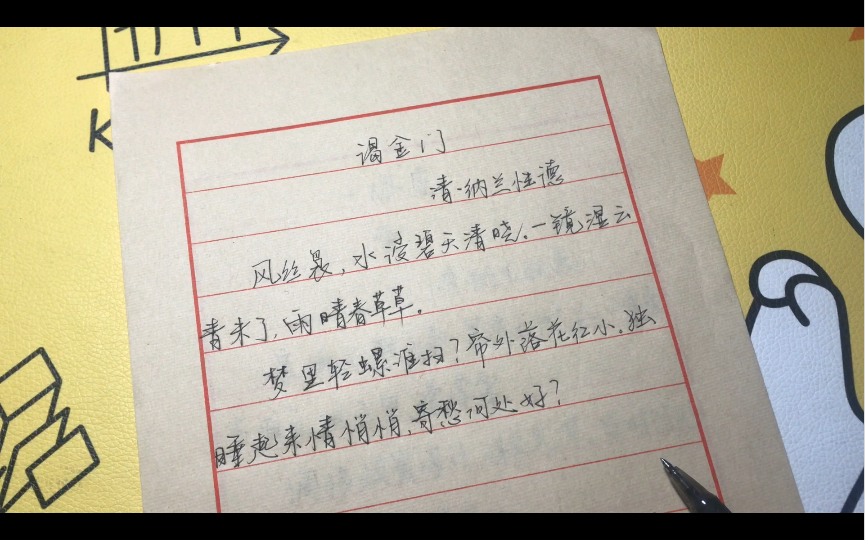 谒金门
清·纳兰性德
风丝袅,水浸碧天清晓。一镜湿云
青未了,雨晴春草草。
梦里轻螺谁扫?帘外落花红小。独
睡起来情悄悄,寄愁何处好?
K